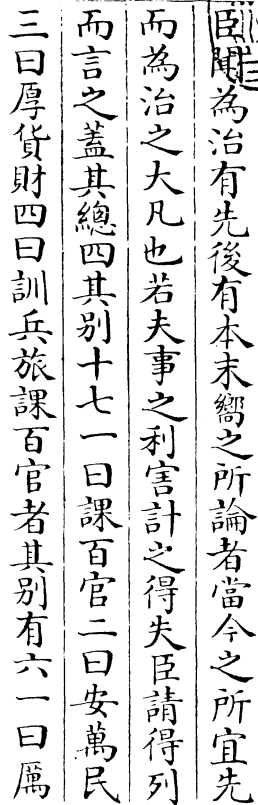 臣聞為治有先後有本末嚮之所論者當今之所宜先
而為治之大凡也若夫事之利害計之得失臣請得列
而言之蓋其總四其别十七一曰課百官二曰安萬民
三曰厚貨財四曰訓兵旅課百官者其别有六一曰厲